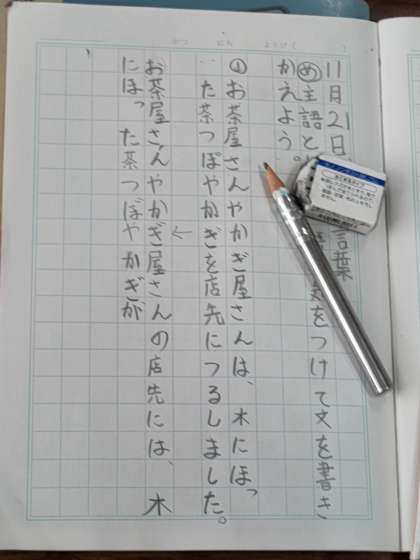 11月21日 言葉
め 主語と 気をつけて文を書き
かえよう。
①お茶屋さんやかぎ屋さんは、木にほっ
た茶つぼやかぎを店先につるしました。
←
お茶屋さんやかぎ屋さんの店先には、木
にほった茶つぼやかぎが